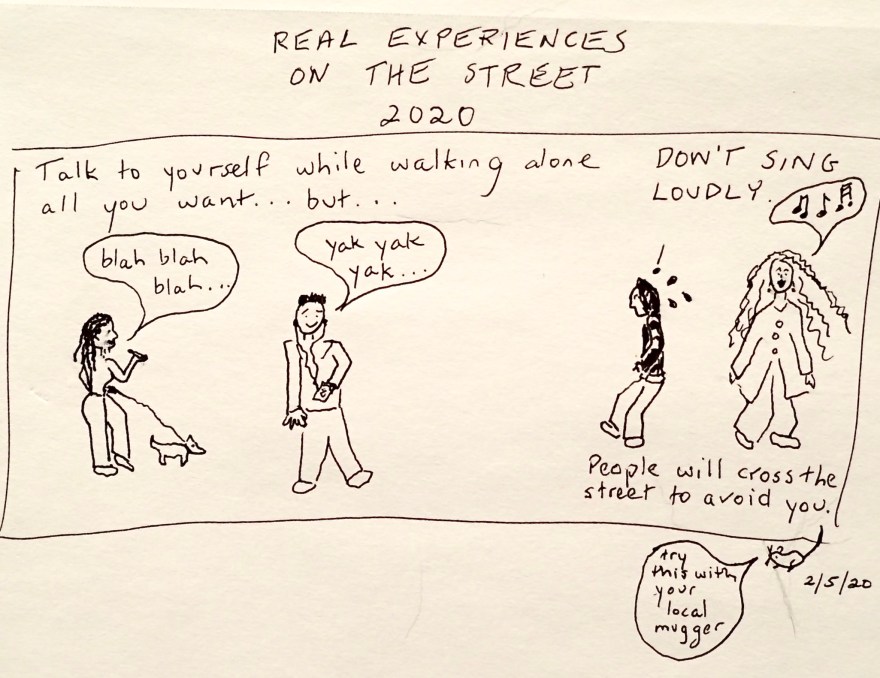 REAL EXPERIENCES
ON THE STREET
2020
Talk to yourself while walking alone
all you want... but...
DON'T SING
LOUDLY.
blah blah
blah...
yak yak
yak...
People will cross the
street to avoid you.
try
this with
your
local
mugger
2/5/20